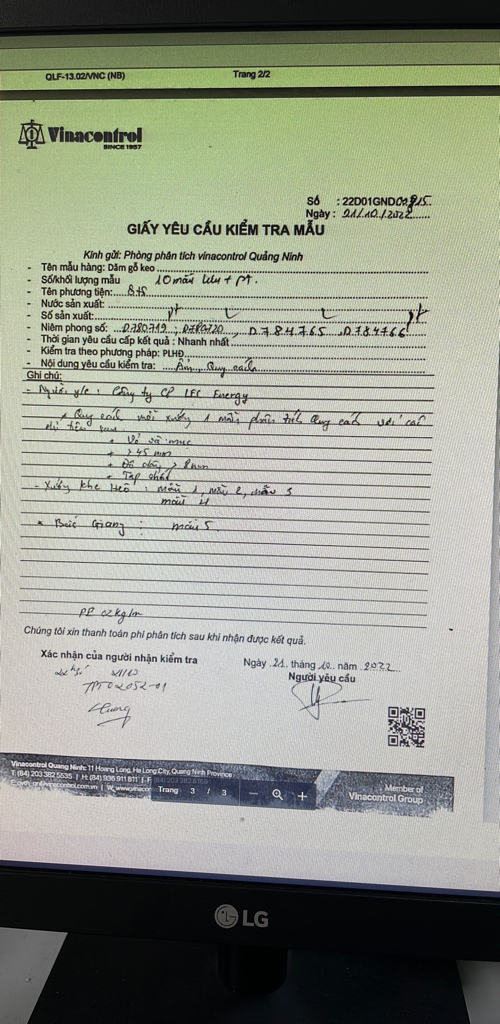 QLF-13.02/VNC (NB) Trang 2/2
Vinacontrol
SINCE 1957
Số : 22D01GND
Ngày : 21/10/2022
GIẤY YÊU CẦU KIỂM TRA MẪU
Kính gửi: Phòng phân tích vinacontrol Quảng Ninh
- Tên mẫu hàng: Dăm gỗ keo
- Số/khối lượng mẫu 10 mẫu lưu + PT.
- Tên phương tiện:
- Nước sản xuất:
- Số sản xuất:
- Niêm phong số: D780719 ; D780720 , D784765 , D784766
- Thời gian yêu cầu cấp kết quả : Nhanh nhất
- Kiểm tra theo phương pháp: PLHĐ
- Nội dung yêu cầu kiểm tra: Ẩm, Quy cách
Ghi chú:
- Người y/c : Công ty CP Energy
+ Quy cách mỗi xưởng 1 mẫu phân tích Quy cách với các
chỉ tiêu sau
+ Vỏ và mục
+ >45 mm
+ Độ dày > 8mm
+ Tạp chất
- Xưởng Khe : mẫu 1, mẫu 2, mẫu 3
mẫu 4
* Bắc Giang : mẫu 5
PP 02kg/m
Chúng tôi xin thanh toán phí phân tích sau khi nhận được kết quả.
Xác nhận của người nhận kiểm tra
Ngày 21 tháng 10 năm 2022
Người yêu cầu
TPT02052-01
Vinacontrol Quang Ninh: 11 Hoang Long, Ha Long City, Quang Ninh Province
T: (84) 203 382 5535 | H: (84) 936 911 811 | F:
vinacontrol.com.vn | W: www.vinacon
Trang 3 / 3 — +
Member of
Vinacontrol Group
LG